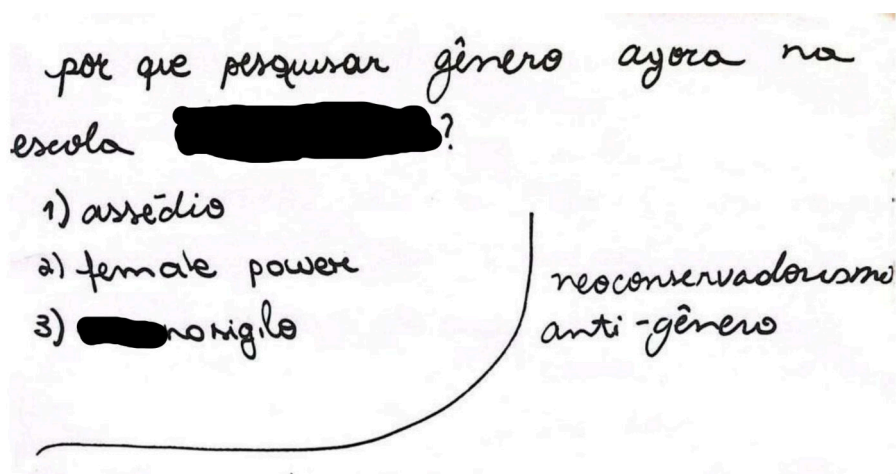 por que pesquisar gênero agora na
escola ?
1) assédio
2) female power
3) nosigilo
neoconservadorismo
anti-gênero